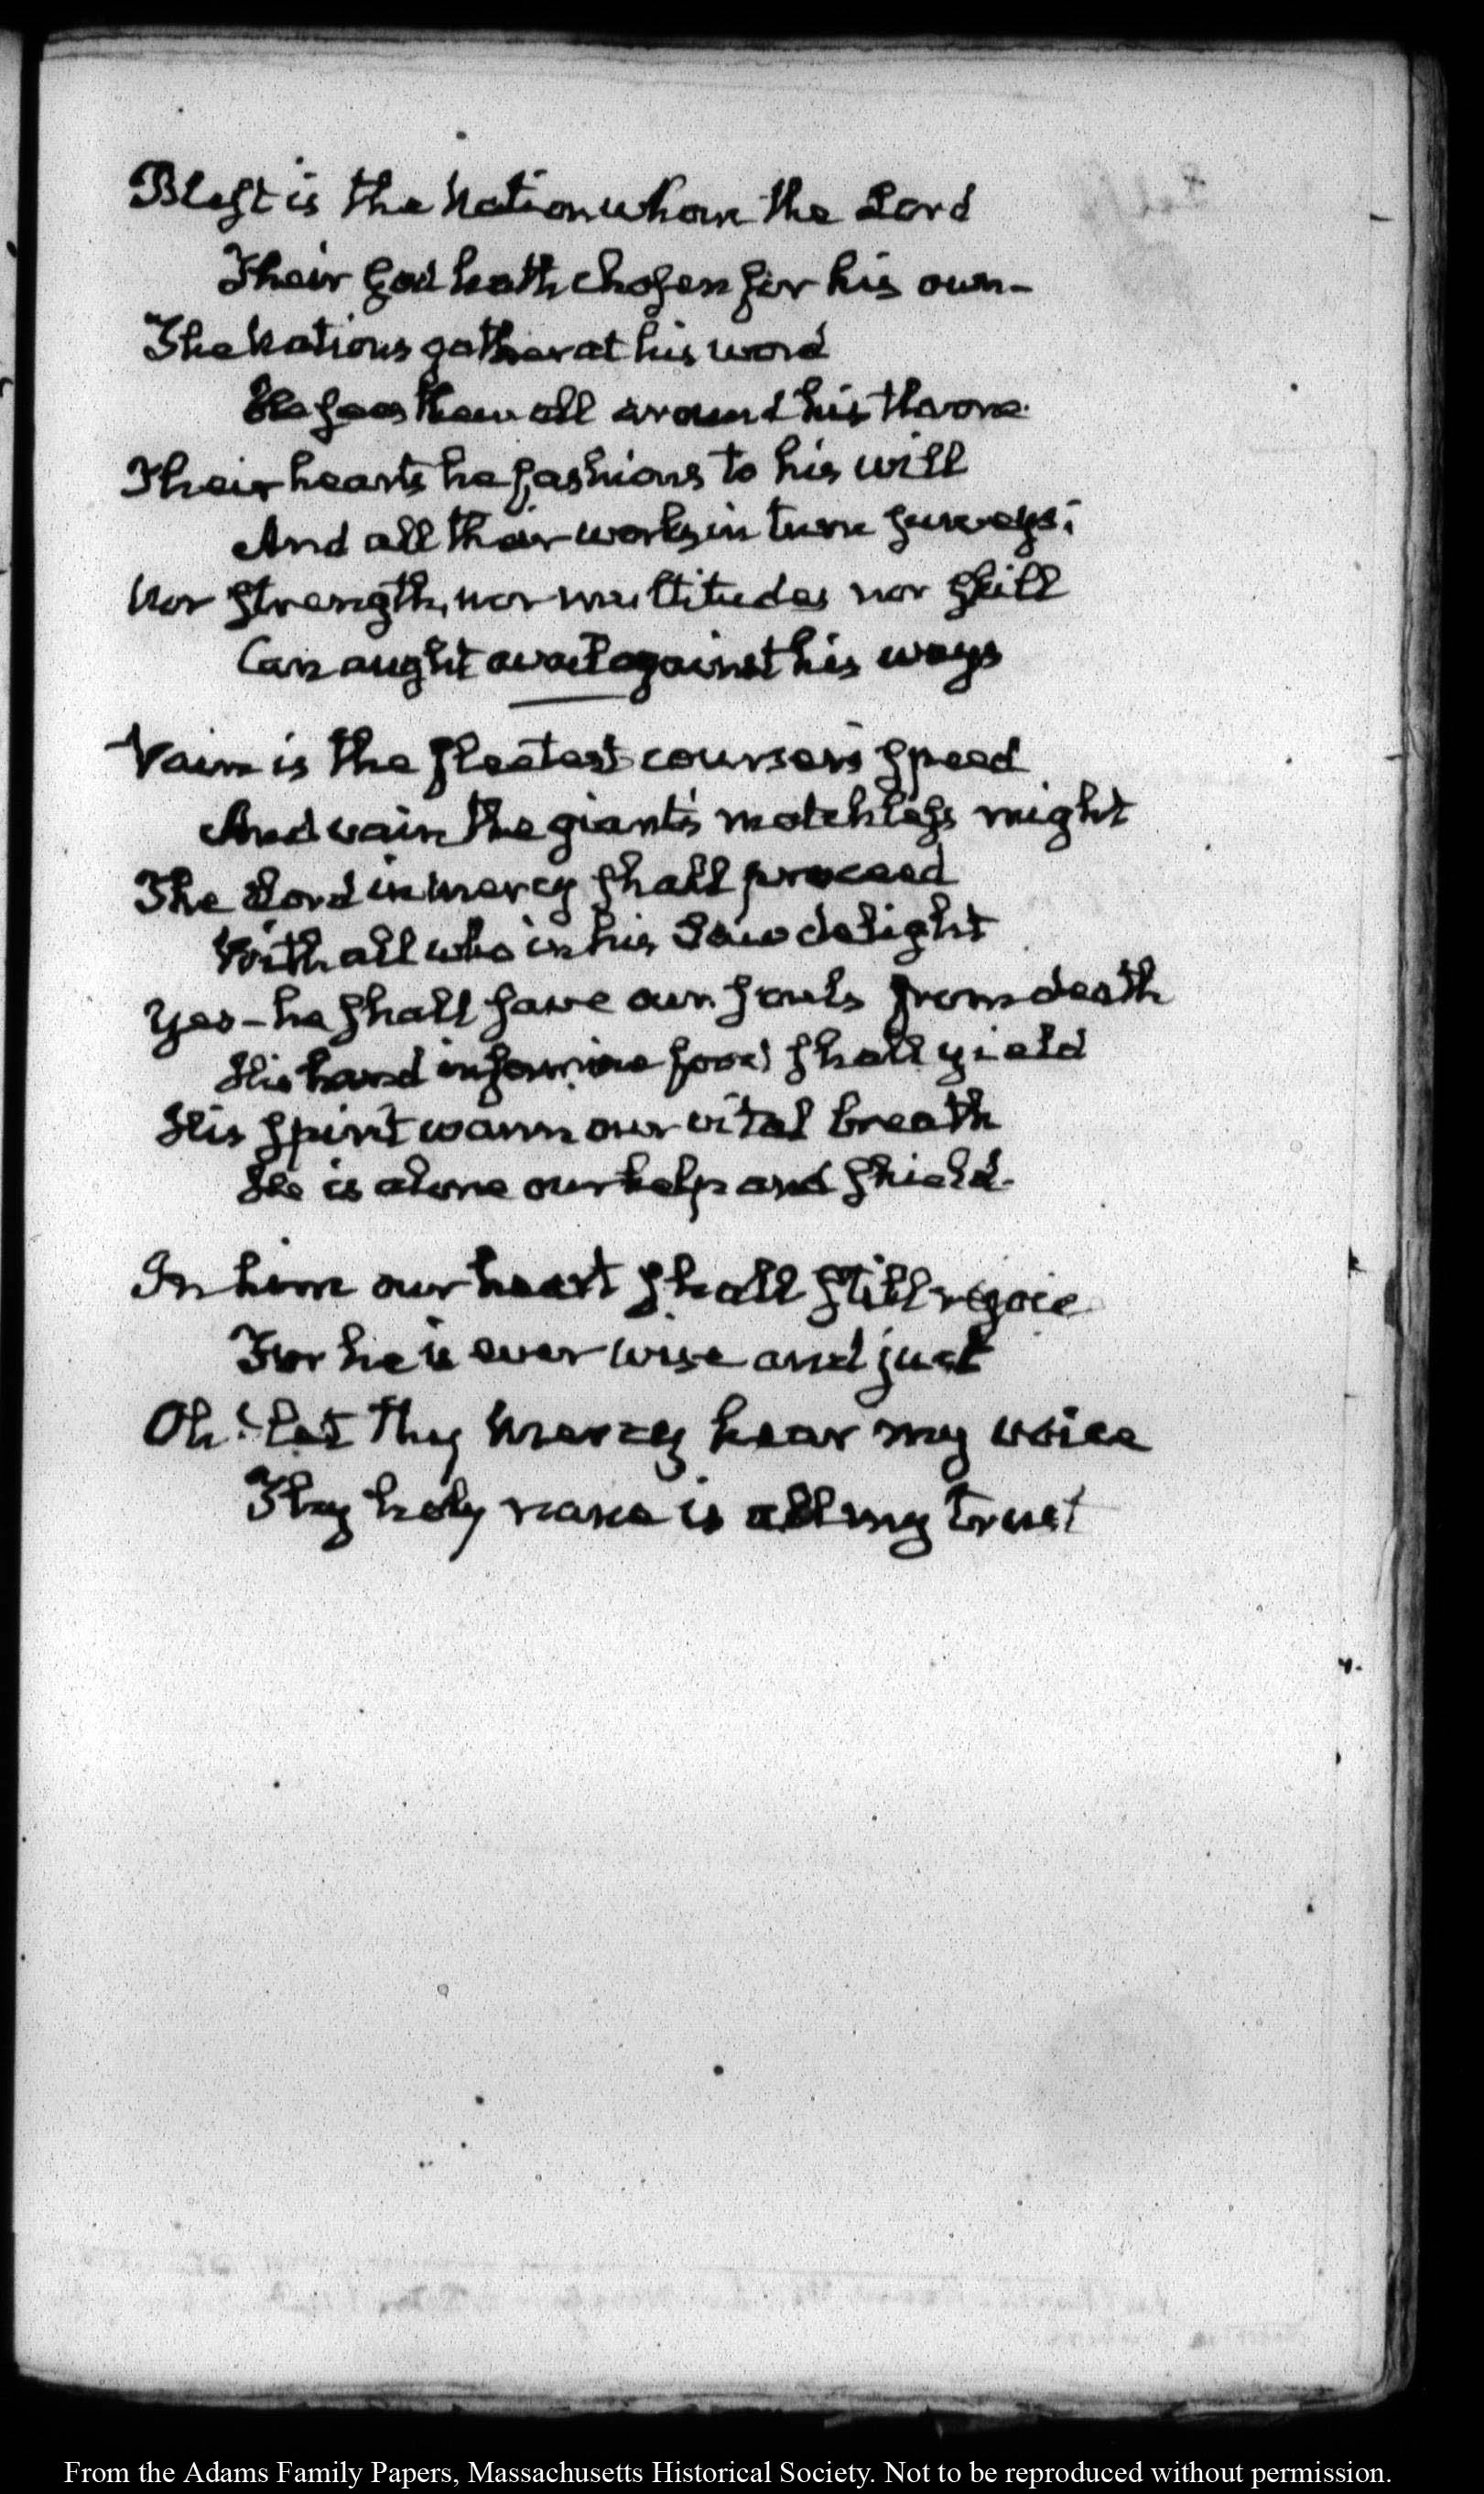 Blest is the Nation whom the Lord
Their God hath chosen for his own–
The Nations gather at his word
He sees them all around his throne.
Their hearts he fashions to his will
And all their works in turn surveys;
Nor strength, nor multitudes nor skill
Can aught avail against his ways
Vain is the fleetest courser's speed
And vain the giant's matchless might
The Lord in mercy shall proceed
With all who in his Law delight
Yes – he shall save our souls from death
His hand in famine food shall yield
His spirit warm our vital breath
He is alone our help and shield.
In him our heart shall still rejoice
For he is ever wise and just
Oh! let thy mercy hear my voice
Thy holy name is all my trust
From the Adams Family Papers, Massachusetts Historical Society. Not to be reproduced without permission.